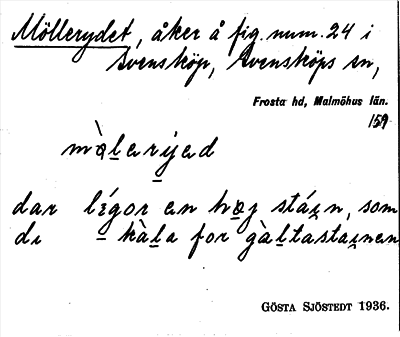 Möllerydet, åker å fig. num. 24 i
Svensköp, Svensköps sn,
Frosta hd, Malmöhus län.
159
mø̀l̲ari̲jad
dar lɛ́gor en hø̲j stáin, som
di kàl̲a for gàl̲tastai̲nen
GÖSTA SJÖSTEDT 1936.